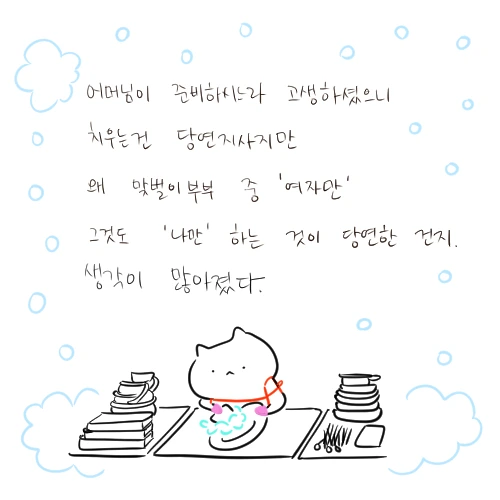 어머님이 준비하시느라 고생하셨으니
치우는건 당연지사지만
왜 맞벌이부부 중 '여자만'
그것도 '나만' 하는 것이 당연한 건지.
생각이 많아졌다.